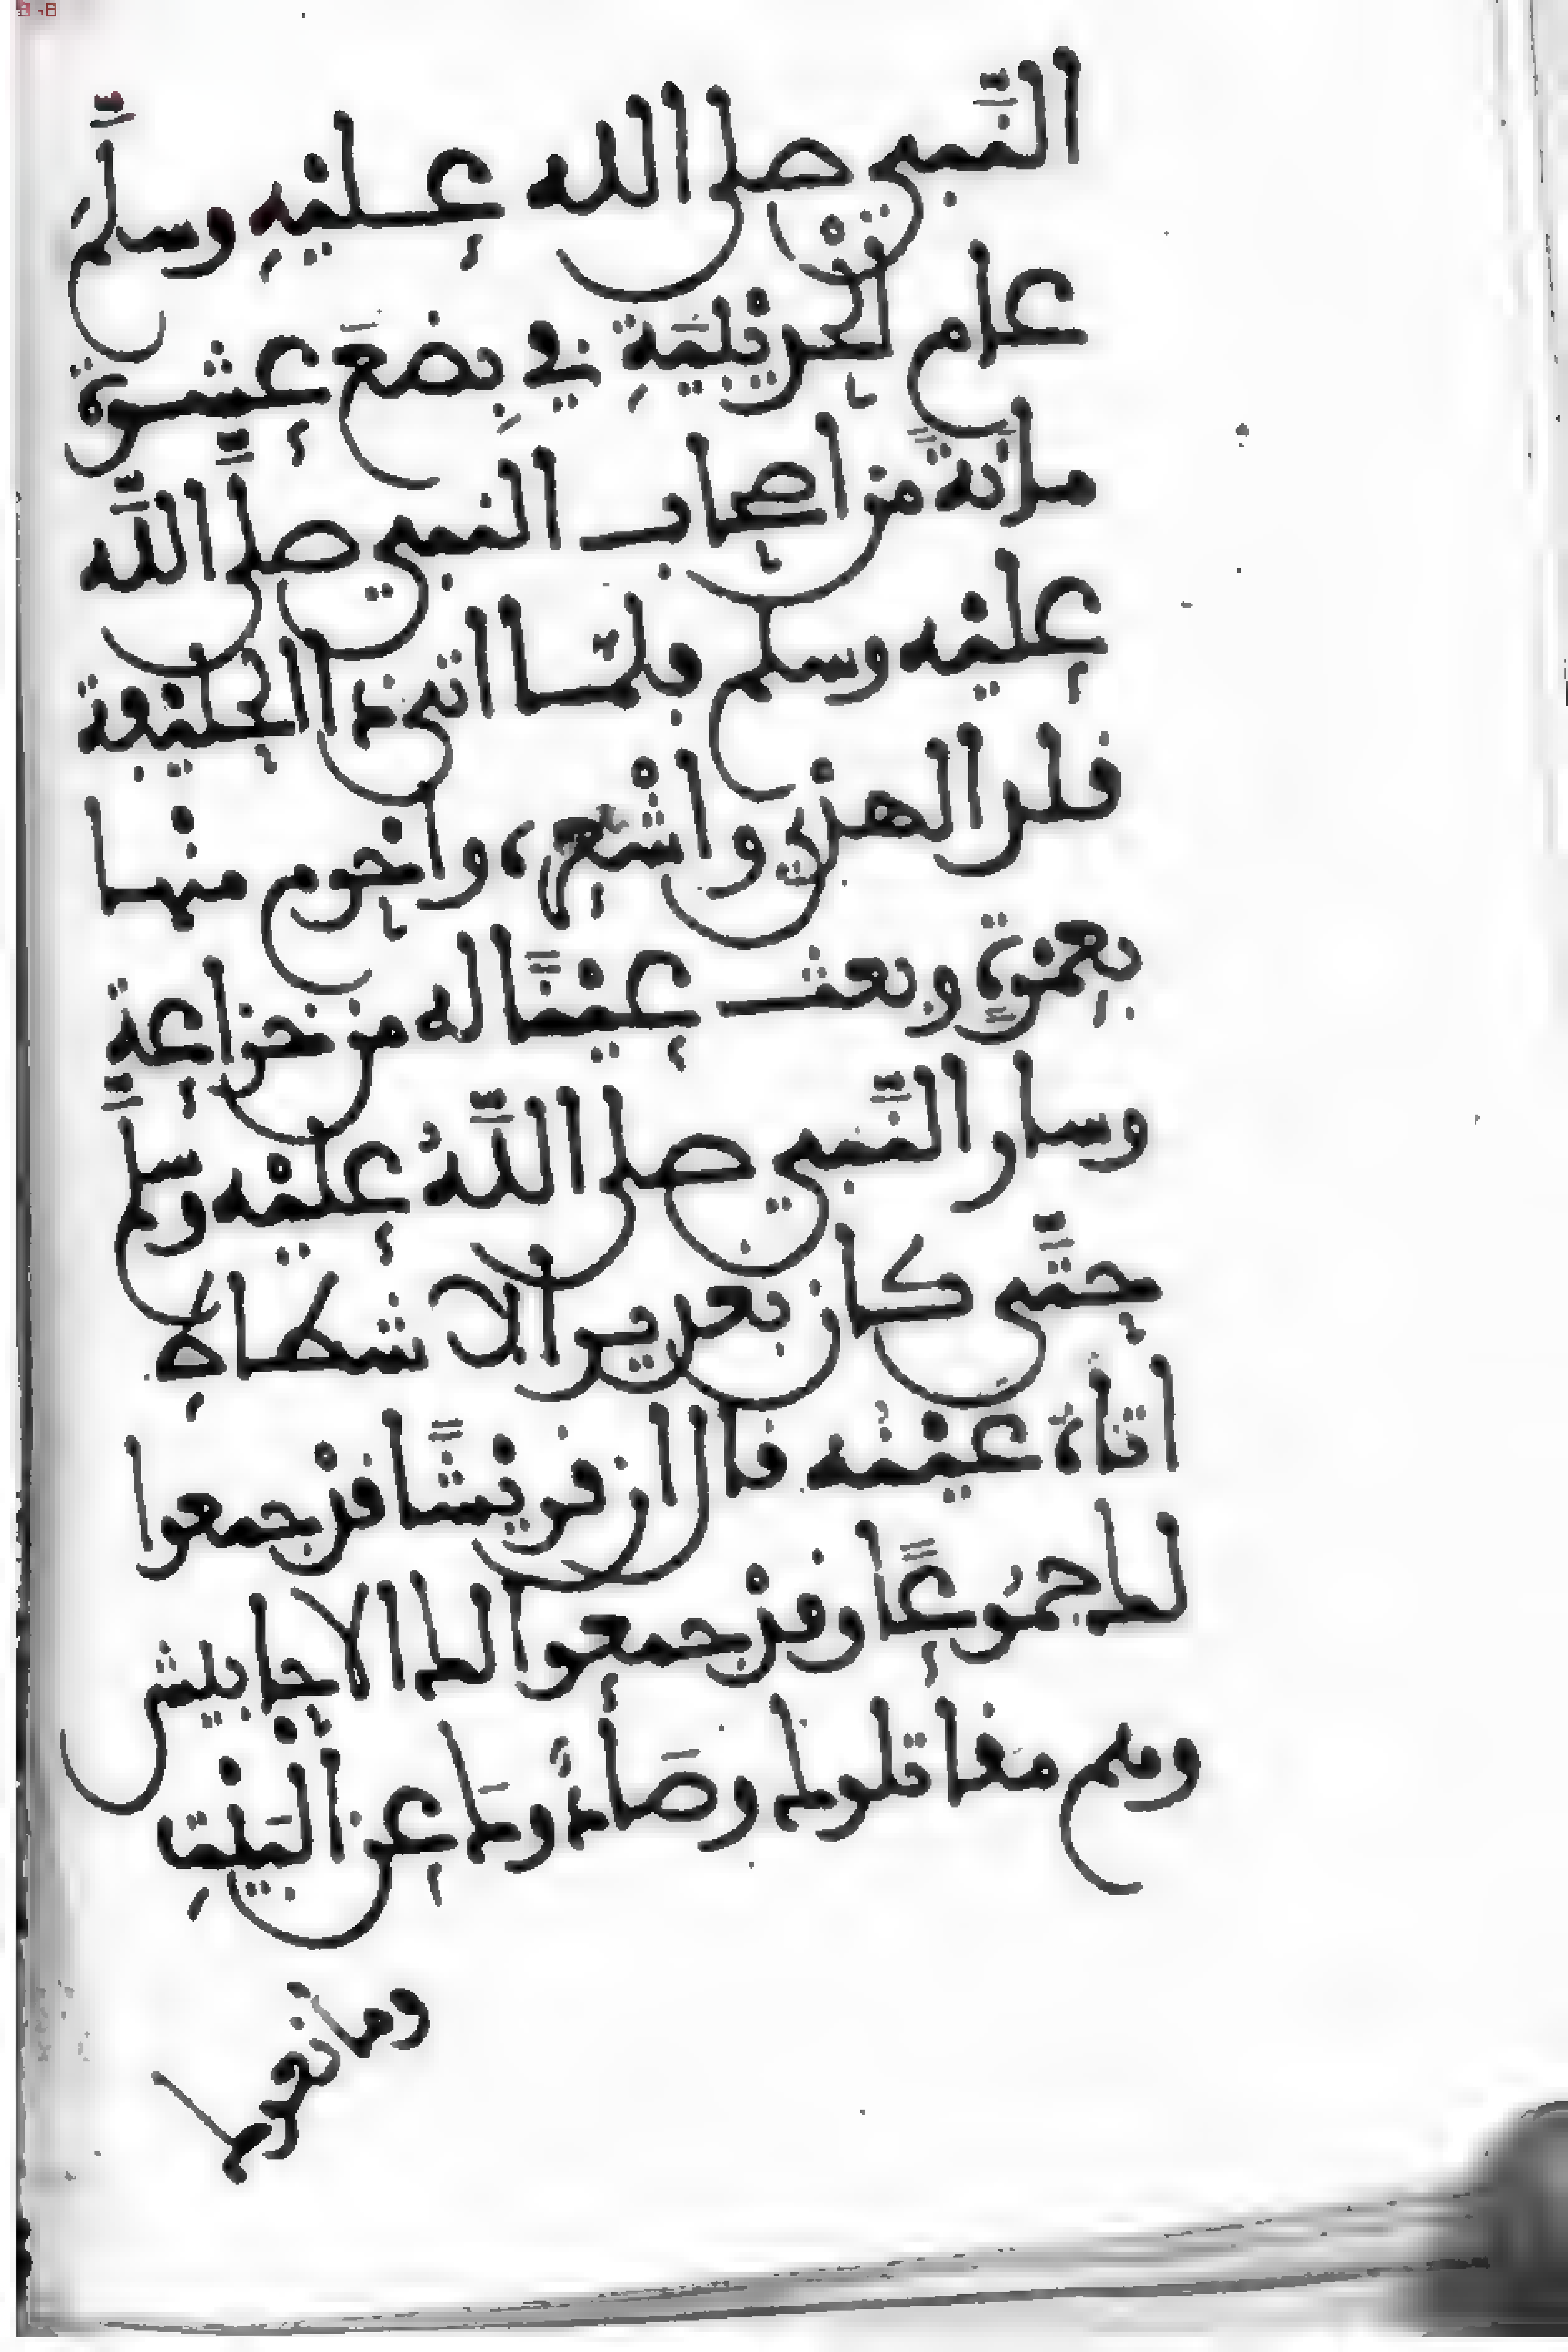 النَّبي صلى الله عليْهِ وسلَّم
عام الحُديْبِيَةِ في بِضعَ عشرة
مائةً من اصحاب النبي صلَّى اللَّه
عليْه وسلم فلمَّا اتى ذا الحليْفة
قلد الهدْي واشْعره واحْرم منْها
بعمرةٍ وبعث عيْنًا له من خزاعة
وسار النَّبي صلى اللَّهُ عليْه وسلَّم
حتَّى كان بغدير الاشطاطِ
اتاه عيْنُه قال ان قريْشًا قدْ جمعوا
لك جمُوعًا وقدْ جمعوا لك الاحابيش
وهم مقاتلوك وصَادُّوكَ عن الْبَيْتِ
ومانعوك